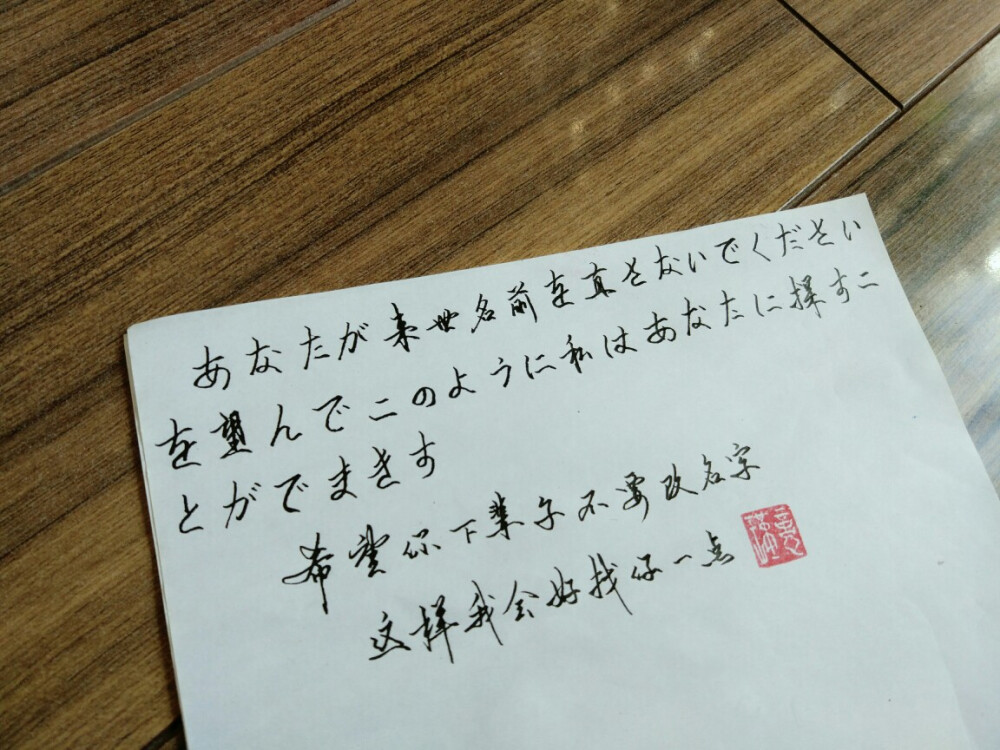 あなたが来世名前を真さないでください
を望んでこのように私はあなたに探すこ
とがでまきす
希望你下辈子不要改名字
这样我会好找你一点